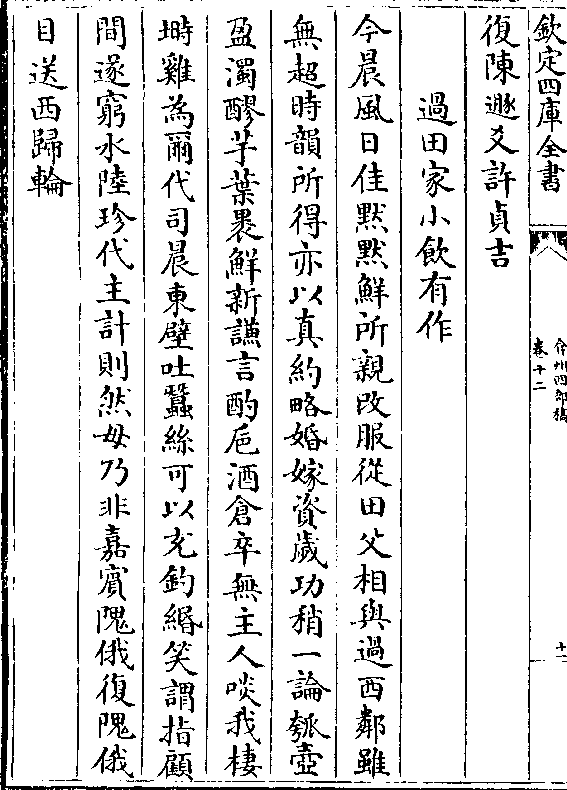 欽定四庫全書
弇州四部稿
卷十二
十一
復陳遯爻許貞吉
過田家小飲有作
今晨風日佳黙黙鮮所親改服從田父相與過西鄰雖
無超時韻所得亦以真約略婚嫁資歲功稍一論瓠壺
盈濁醪芋葉裹鮮新謙言酌巵酒倉卒無主人啖我棲
塒雞為爾代司晨東壁吐蠶絲可以充釣緡笑謂指顧
間遂窮水陸珍代主計則然毋乃非嘉賓隗俄復隗俄
目送西歸輪